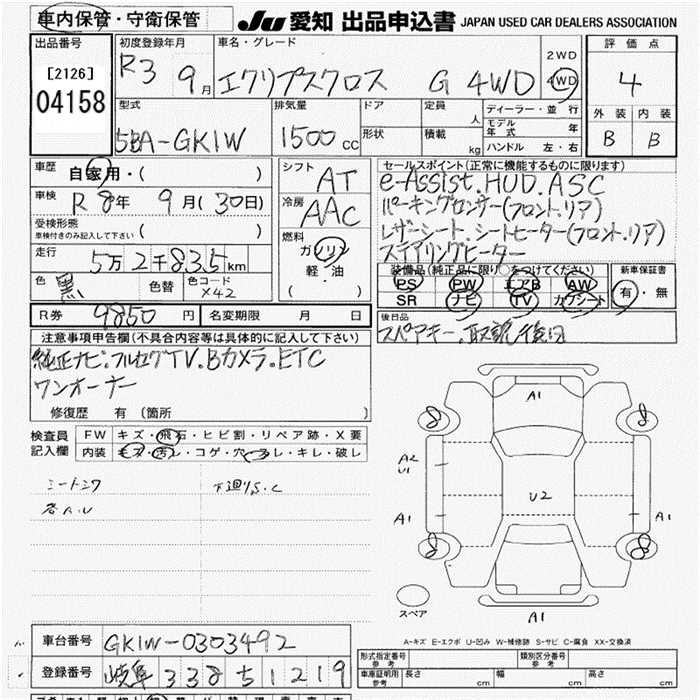 車内保管・守衛保管
JU 愛知 出品申込書 JAPAN USED CAR DEALERS ASSOCIATION
出品番号
[2126]
04158
初度登録年月
R3 9月
車名・グレード
エクリプスクロス G 4WD
2WD
4WD
評価点
4
外装 内装
B B
型式
5BA-GK1W
排気量
1500cc
ドア
形状
定員
人
積載
kg
ディーラー・並行
モデル年式 年
ハンドル 左・右
車歴
自家用・( )
車検
R8年 9月(30日)
受検形態
車検付きのみ記入して下さい ( )
走行
5万2千835km
色
黒
色替
色コード
X42
シフト
AT
冷房
AAC
燃料
ガソリン
軽・油
( )
セールスポイント(正常に機能するものに限ります)
e-Assist.HUD.ASC
パーキングセンサー(フロント.リア)
レザーシート.シートヒーター(フロント.リア)
ステアリングヒーター
装備品(純正品に限り○をつけてください)
PS PW エアB AW
SR ナビ TV カワシート
新車保証書
有・無
R券 9850円 名変期限 月 日
後日品
スペアキー.取説後日
注意事項申告欄(不具合内容等は具体的に記入して下さい)
純正ナビ.フルセグTV.Bカメラ.ETC
ワンオーナー
修復歴 有 (箇所 )
検査員
記入欄
FW キズ・飛石・ヒビ割・リペア跡・X要
内装 キズ・汚レ・コゲ・穴・スレ・キレ・破レ
シートシワ
各A.U
下廻りS.C
A1
8 8
A2
U1
U2
A1 A1
8 8
スペア
A1
A-キズ E-エクボ U-凹み W-補修跡 S-サビ C-腐食 XX-交換済
車台番号 GK1W-0303492
登録番号 岐阜 338 ち 1219
形式指定番号
参考
類別区分番号
参考
車庫証明用
参考
長さ cm 幅 cm 高さ cm